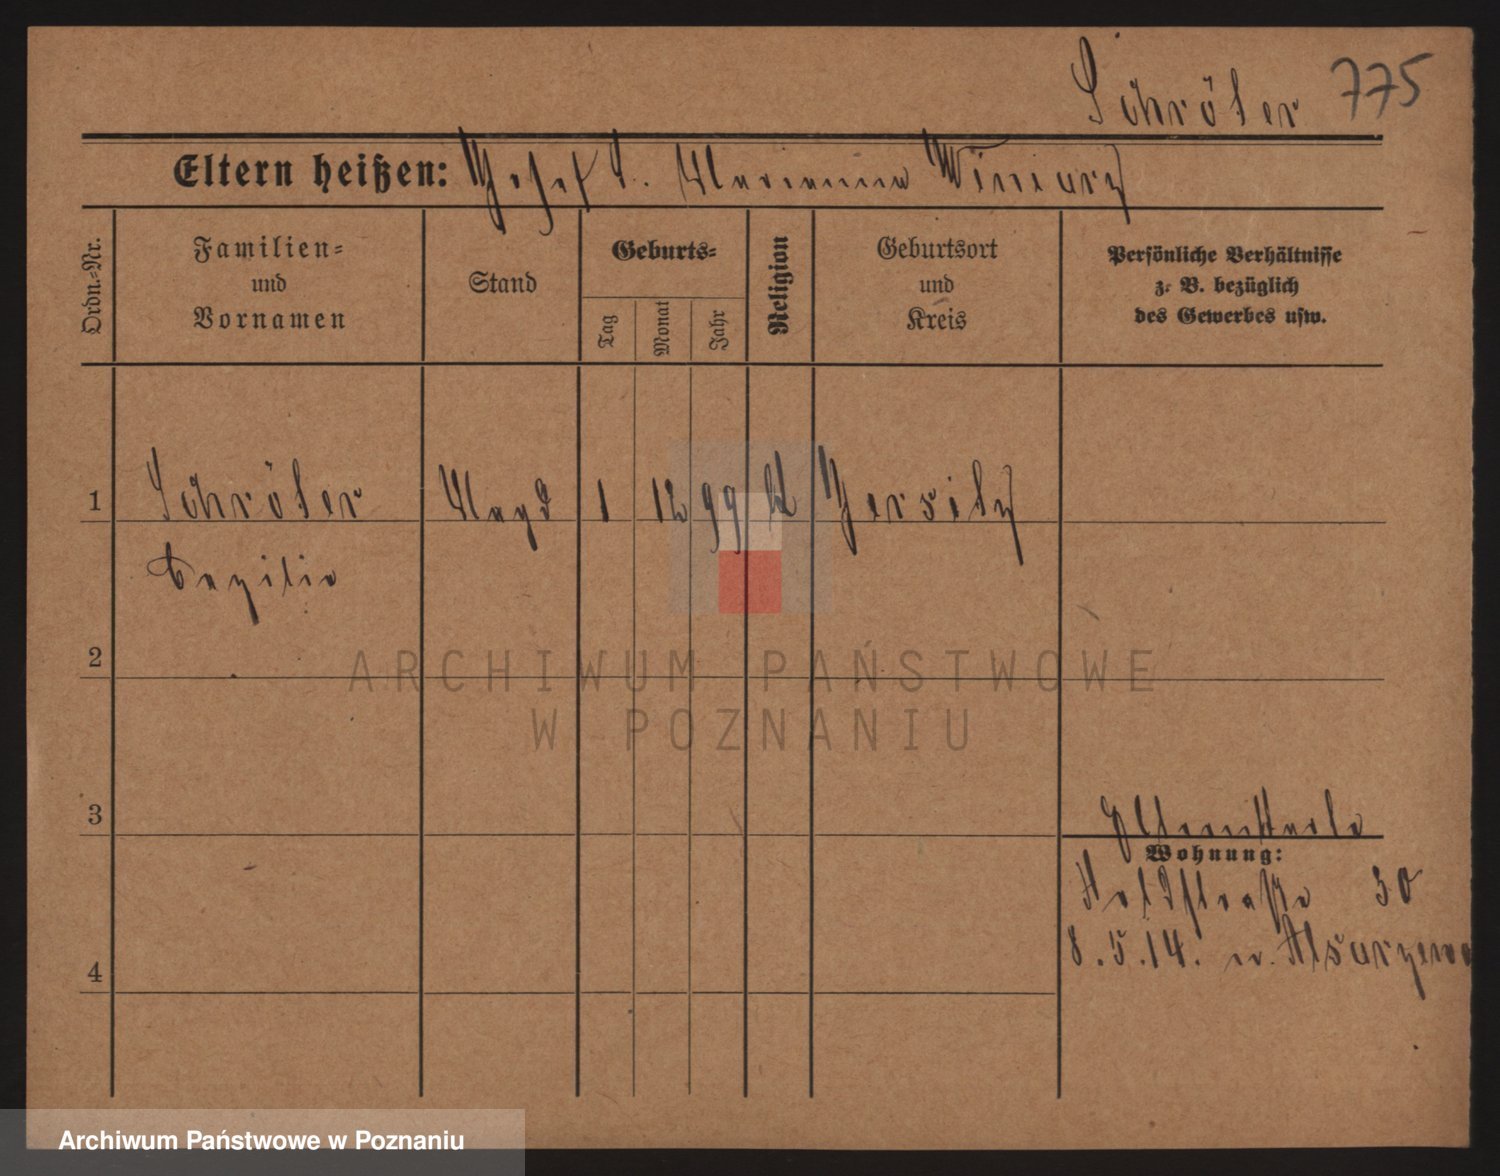 Schröter 775
Eltern heißen: Josef S. Marianna Winiarz
Ordn.-Nr.
Familien-
und
Vornamen
Stand
Geburts-
Tag
Monat
Jahr
Religion
Geburtsort
und
Kreis
Persönliche Verhältnisse
z. B. bezüglich
des Gewerbes usw.
1 Schröter Magd 1 12 99 kt Jersitz
Cezilie
2
3
4
Wohnung:
Feldstraße 30
8.5.14. n.
ARCHIWUM PAŃSTWOWE
W POZNANIU
Archiwum Państwowe w Poznaniu